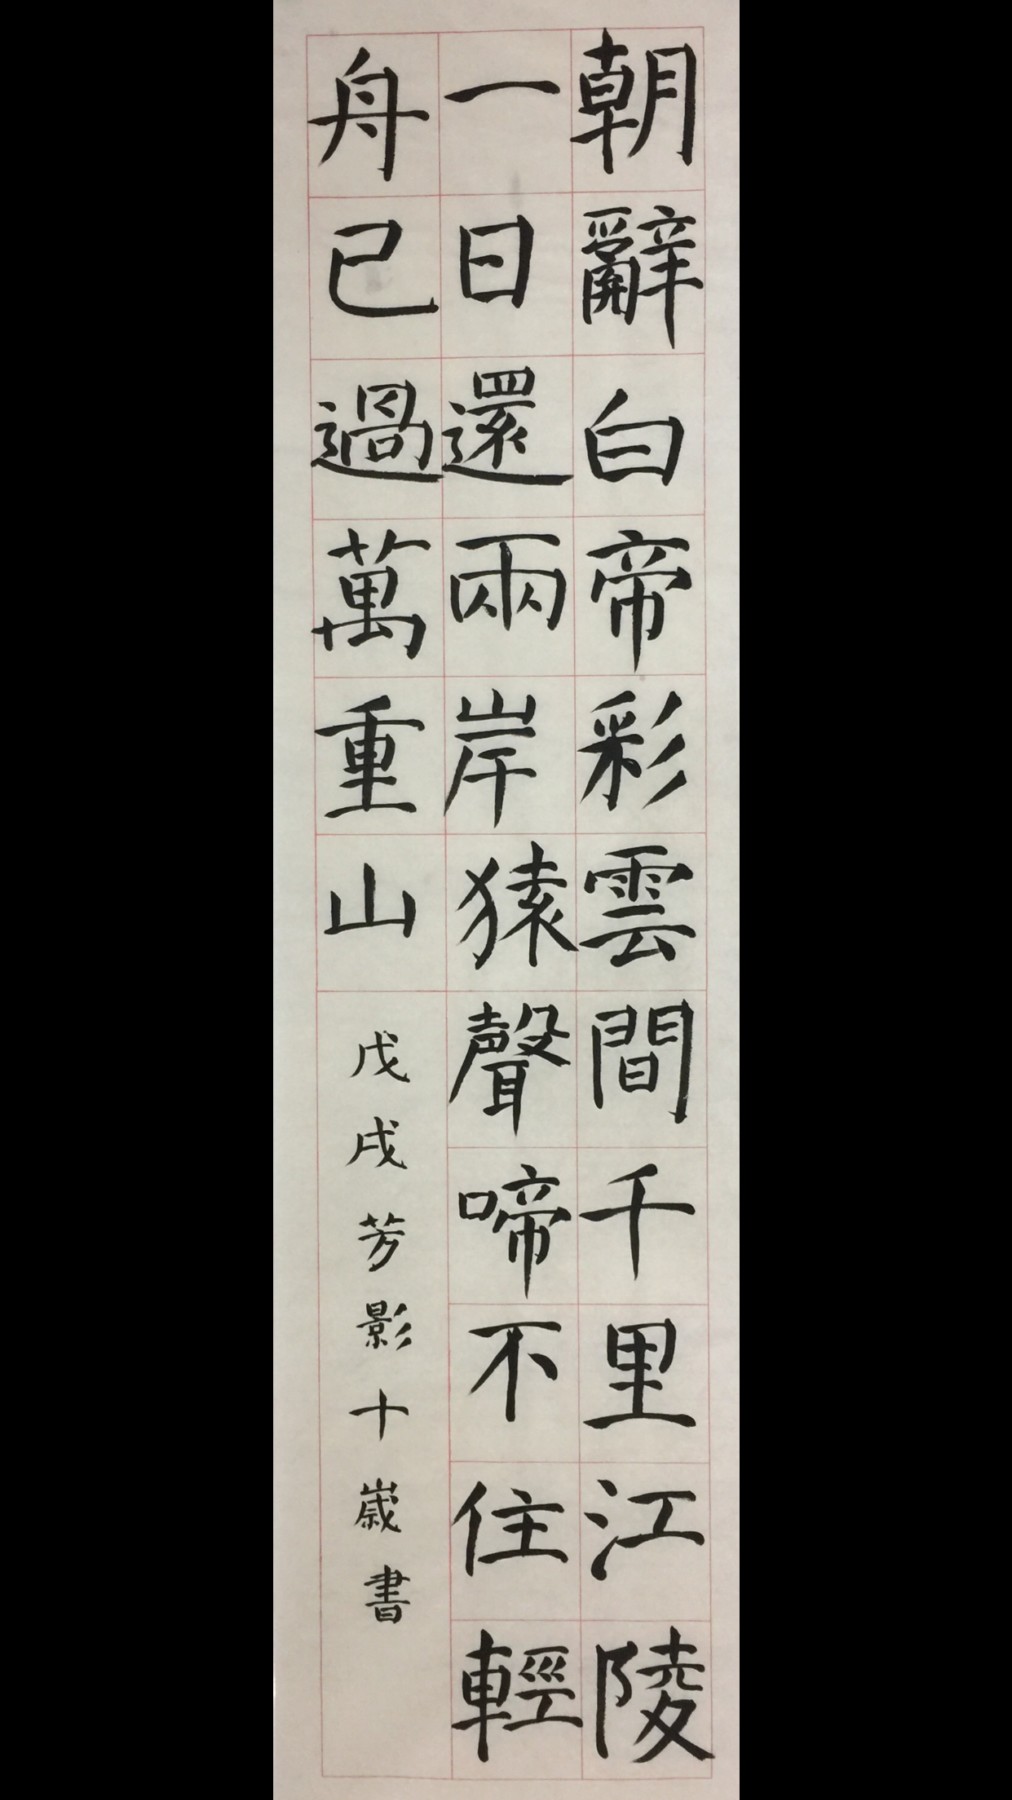 朝辭白帝彩雲間千里江陵
一日還兩岸猿聲啼不住輕
舟已過萬重山
戊戌芳影十歲書